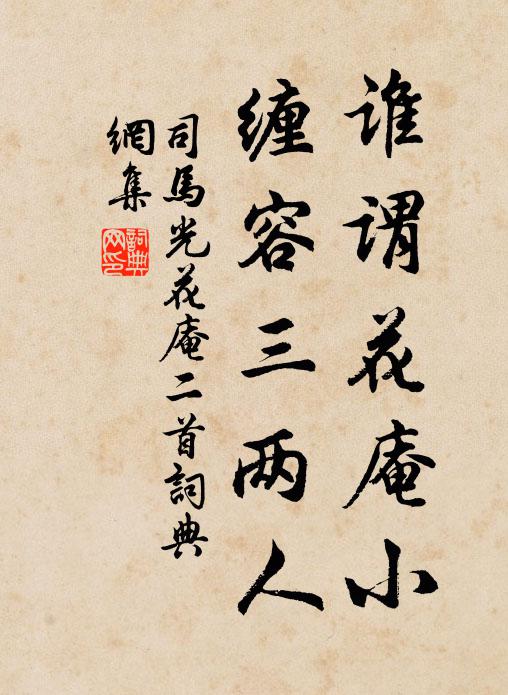 谁谓花庵小
缠容三两人
司馬光花庵二首詞典
網集
詞典
网印